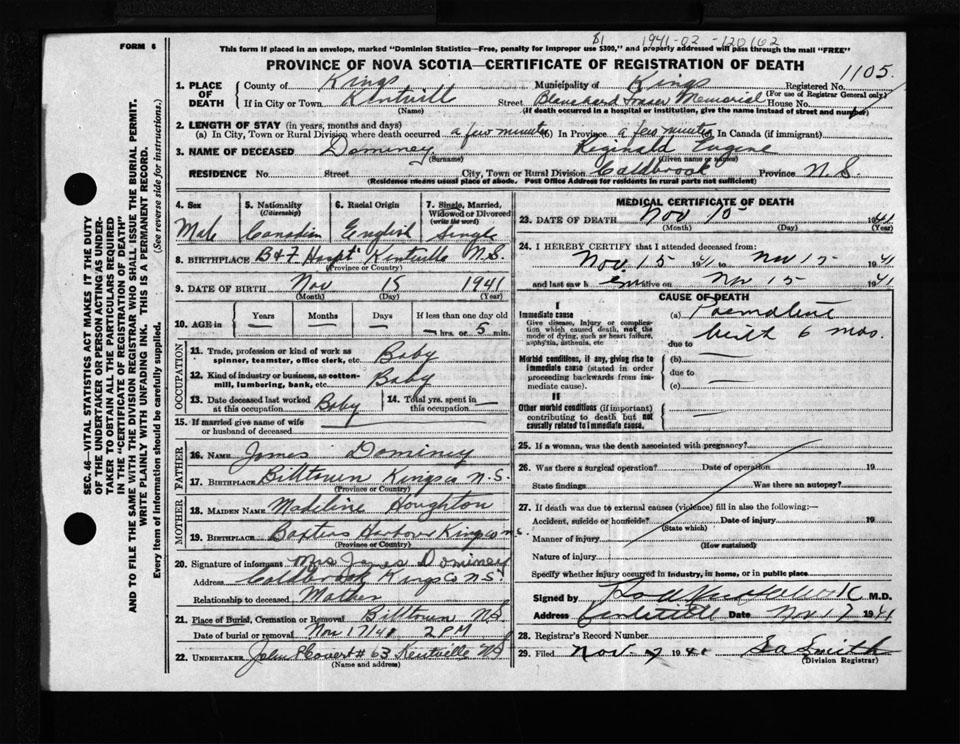 81 1941-02-120162
FORM 6
This form if placed in an envelope, marked "Dominion Statistics—Free, penalty for improper use $300," and properly addressed will pass through the mail "FREE"
PROVINCE OF NOVA SCOTIA—CERTIFICATE OF REGISTRATION OF DEATH
1105.
SEC. 46—VITAL STATISTICS ACT MAKES IT THE DUTY
OF THE UNDERTAKER OR PERSON ACTING AS UNDER-
TAKER TO OBTAIN ALL THE PARTICULARS REQUIRED
IN THE "CERTIFICATE OF REGISTRATION OF DEATH"
AND TO FILE THE SAME WITH THE DIVISION REGISTRAR WHO SHALL ISSUE THE BURIAL PERMIT.
WRITE PLAINLY WITH UNFADING INK. THIS IS A PERMANENT RECORD.
Every item of Information should be carefully supplied. (See reverse side for instructions.)
1. PLACE OF DEATH
County of Kings Municipality of Kings Registered No.
(For use of Registrar General only)
If in City or Town Kentville Street Blanchard Fraser Memorial House No.
(Name) (If death occurred in a hospital or institution, give the name instead of street and number)
2. LENGTH OF STAY (in years, months and days)
(a) In City, Town or Rural Division where death occurred a few minutes (b) In Province a few minutes (c) In Canada (if immigrant)
3. NAME OF DECEASED Dominey Reginald Eugene
(Surname) (Given name or names)
RESIDENCE No. Street City, Town or Rural Division Coldbrook Province N.S.
(Residence means usual place of abode. Post Office Address for residents in rural parts not sufficient)
4. Sex Male
5. Nationality (Citizenship) Canadian
6. Racial Origin English
7. Single, Married, Widowed or Divorced (write the word) Single
8. BIRTHPLACE B & F Hospt Kentville N.S.
(Province or Country)
9. DATE OF BIRTH Nov 15 1941
(Month) (Day) (Year)
10. AGE in Years Months Days If less than one day old
— hrs. or 5 min.
OCCUPATION
11. Trade, profession or kind of work as spinner, teamster, office clerk, etc. Baby
12. Kind of industry or business, as cotton-mill, lumbering, bank, etc. Baby
13. Date deceased last worked at this occupation Baby
14. Total yrs. spent in this occupation —
15. If married give name of wife or husband of deceased
FATHER
16. NAME James Dominey
17. BIRTHPLACE Billtown Kings Co N.S.
(Province or Country)
MOTHER
18. MAIDEN NAME Madeline Houghton
19. BIRTHPLACE Baxters Harbour Kings Co N.S.
(Province or Country)
20. Signature of informant Mrs James Dominey
Address Coldbrook Kings Co N.S
Relationship to deceased Mother
21. Place of Burial, Cremation or Removal Billtown NS
Date of burial or removal Nov 17/41 2 PM
22. UNDERTAKER John P Covert # 63 Kentville NS
(Name and address)
MEDICAL CERTIFICATE OF DEATH
23. DATE OF DEATH Nov 15 1941
(Month) (Day) (Year)
24. I HEREBY CERTIFY that I attended deceased from:
Nov. 15 1941 to Nov 15 1941
and last saw h alive on Nov 15 1941
CAUSE OF DEATH
I
Immediate cause
Give disease, injury or complication which caused death, not the mode of dying, such as heart failure, asphyxia, asthenia, etc.
(a) Premature
birth 6 mos.
due to
Morbid conditions, if any, giving rise to immediate cause (stated in order proceeding backwards from immediate cause).
(b) —
due to
(c) —
II
Other morbid conditions (if important) contributing to death but not causally related to immediate cause. —
25. If a woman, was the death associated with pregnancy?
26. Was there a surgical operation? Date of operation 19
State findings Was there an autopsy?
27. If death was due to external causes (violence) fill in also the following:—
Accident, suicide or homicide? Date of injury 19
(State which)
Manner of injury
(How sustained)
Nature of injury
Specify whether injury occurred in industry, in home, or in public place
Signed by M.D.
Address Kentville Date Nov 17 1941
28. Registrar's Record Number
29. Filed Nov 1941 Smith
(Division Registrar)